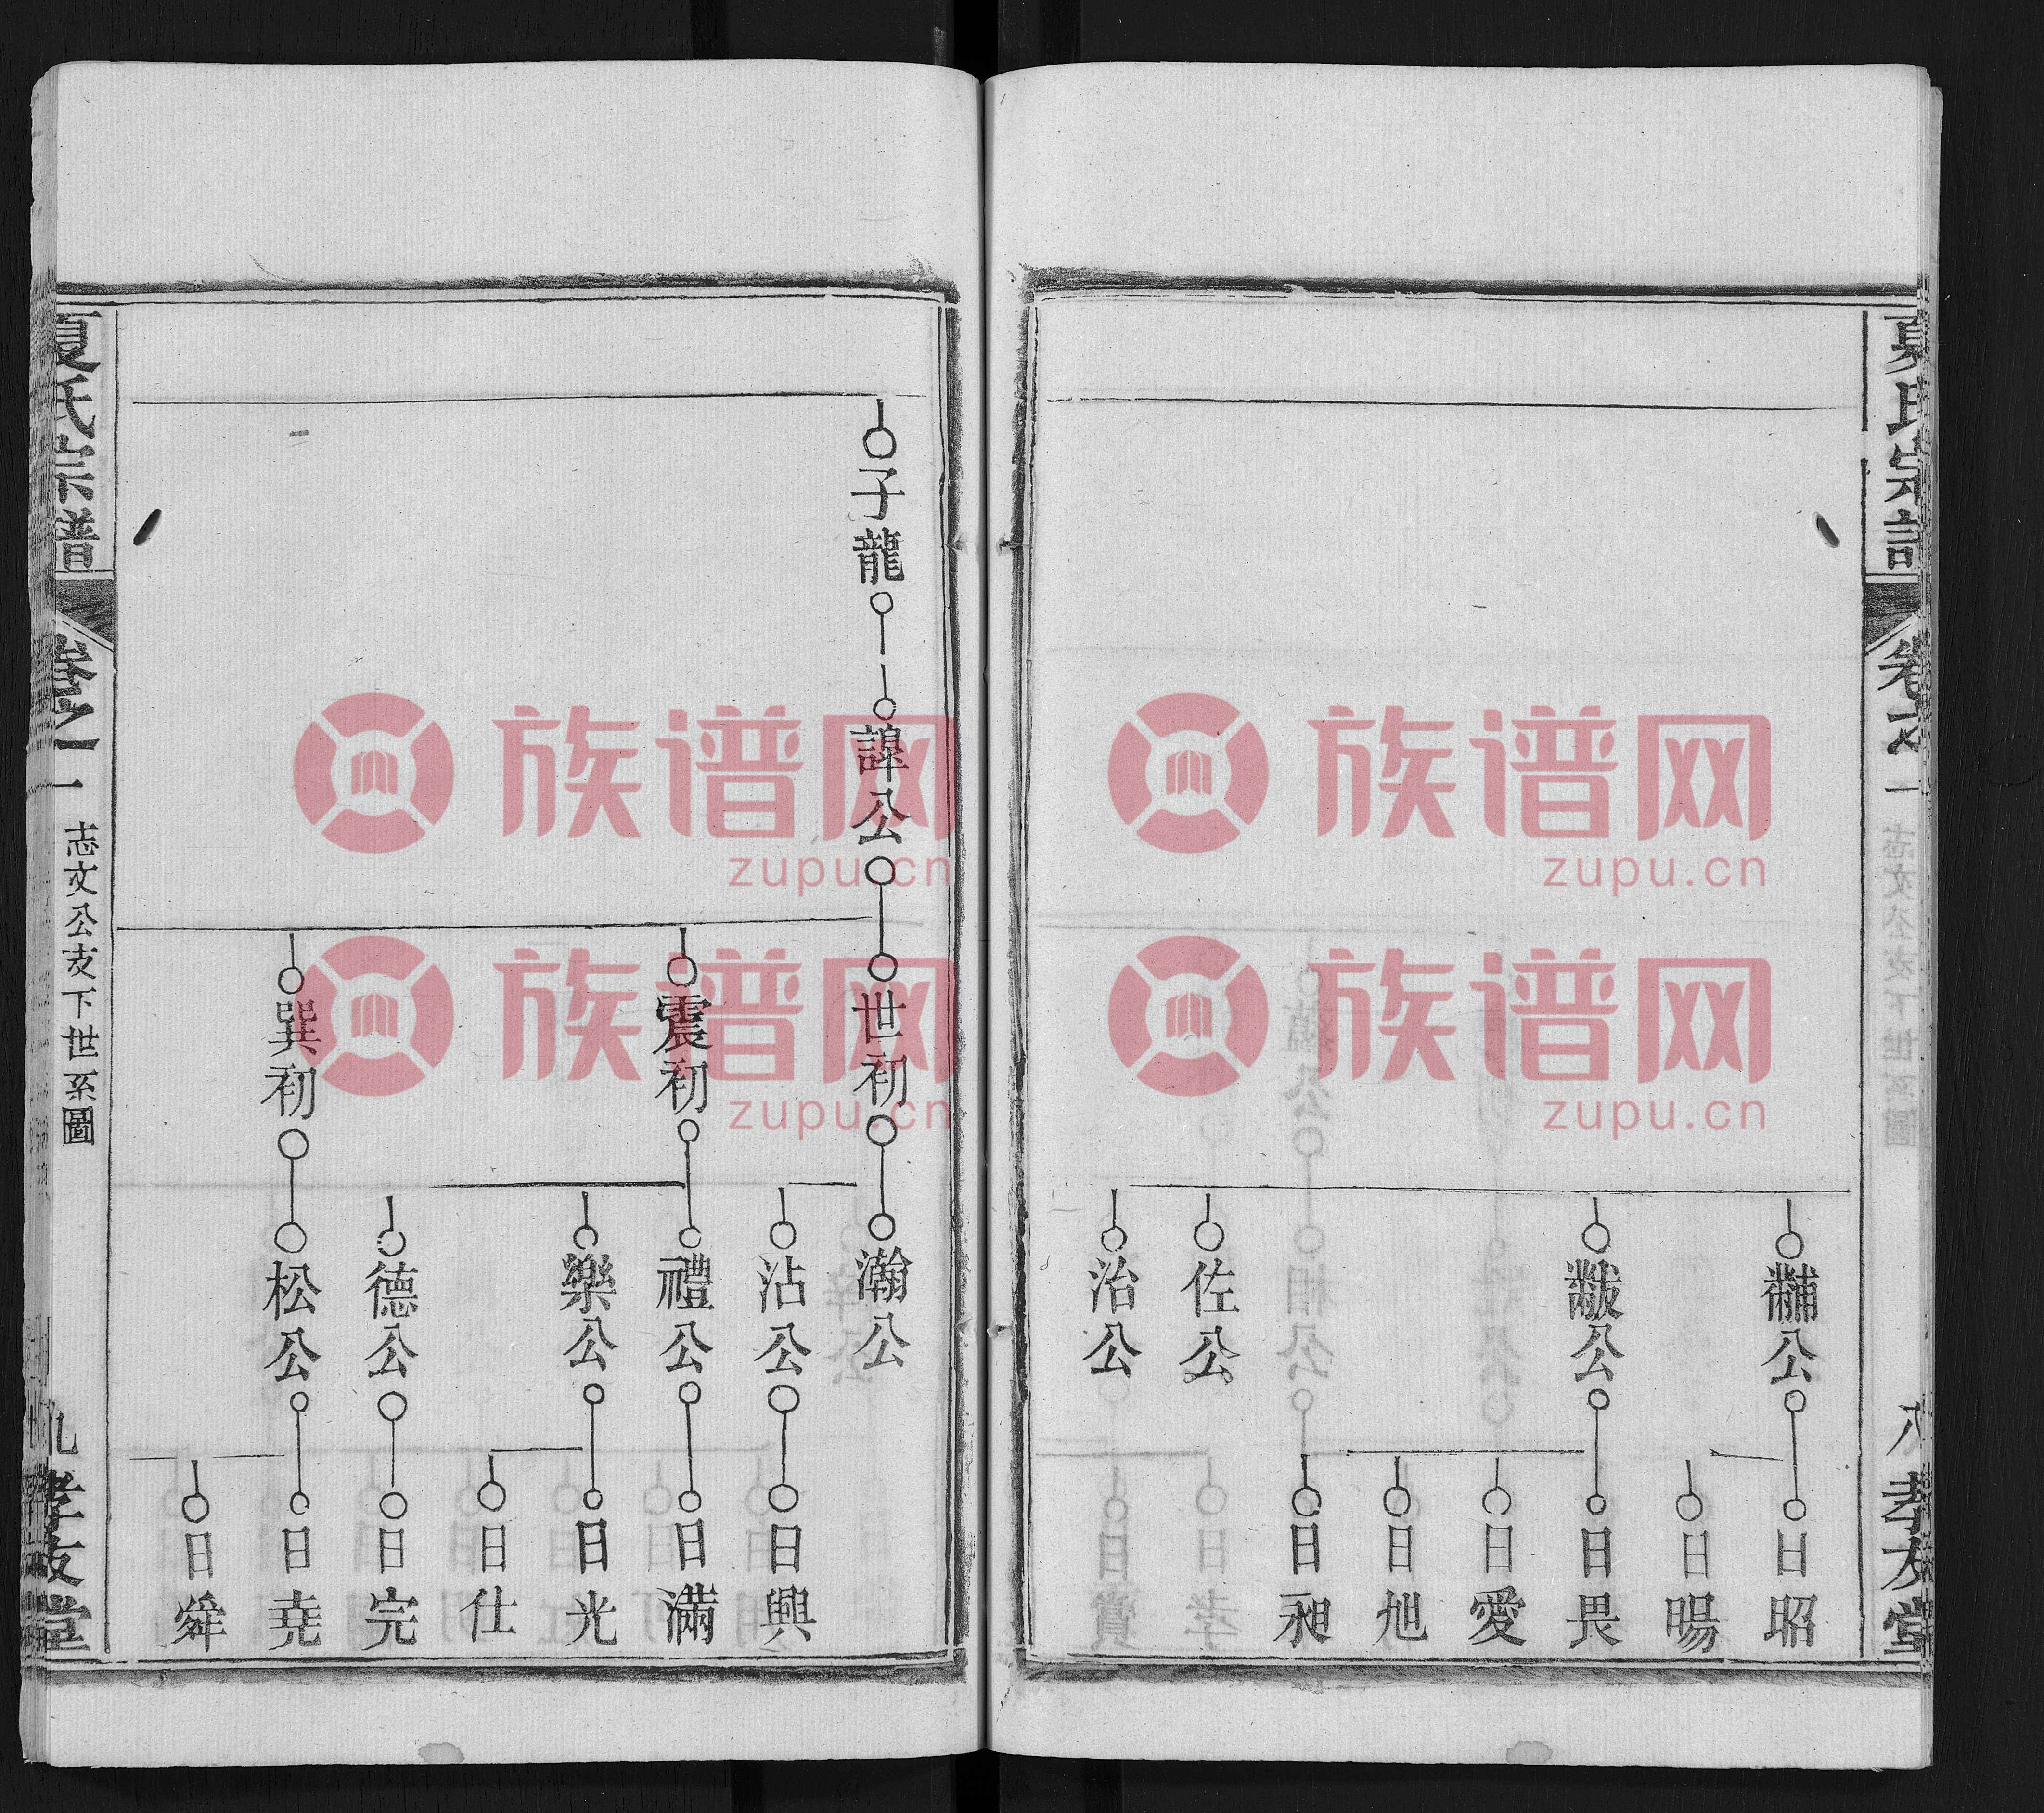 夏氏宗譜
卷之一
八
孝友堂
黼公
日昭
日暘
黻公
日畏
日愛
日旭
日昶
佐公
治公
子龍
諱公
世初
瀚公
沾公
日興
震初
禮公
日滿
樂公
日光
日仕
德公
日完
巽初
松公
日堯
日舜
夏氏宗譜
卷之一
一
志文公支下世系圖
九
孝友堂
族谱网
zupu.cn
族谱网
zupu.cn
族谱网
zupu.cn
族谱网
zupu.cn